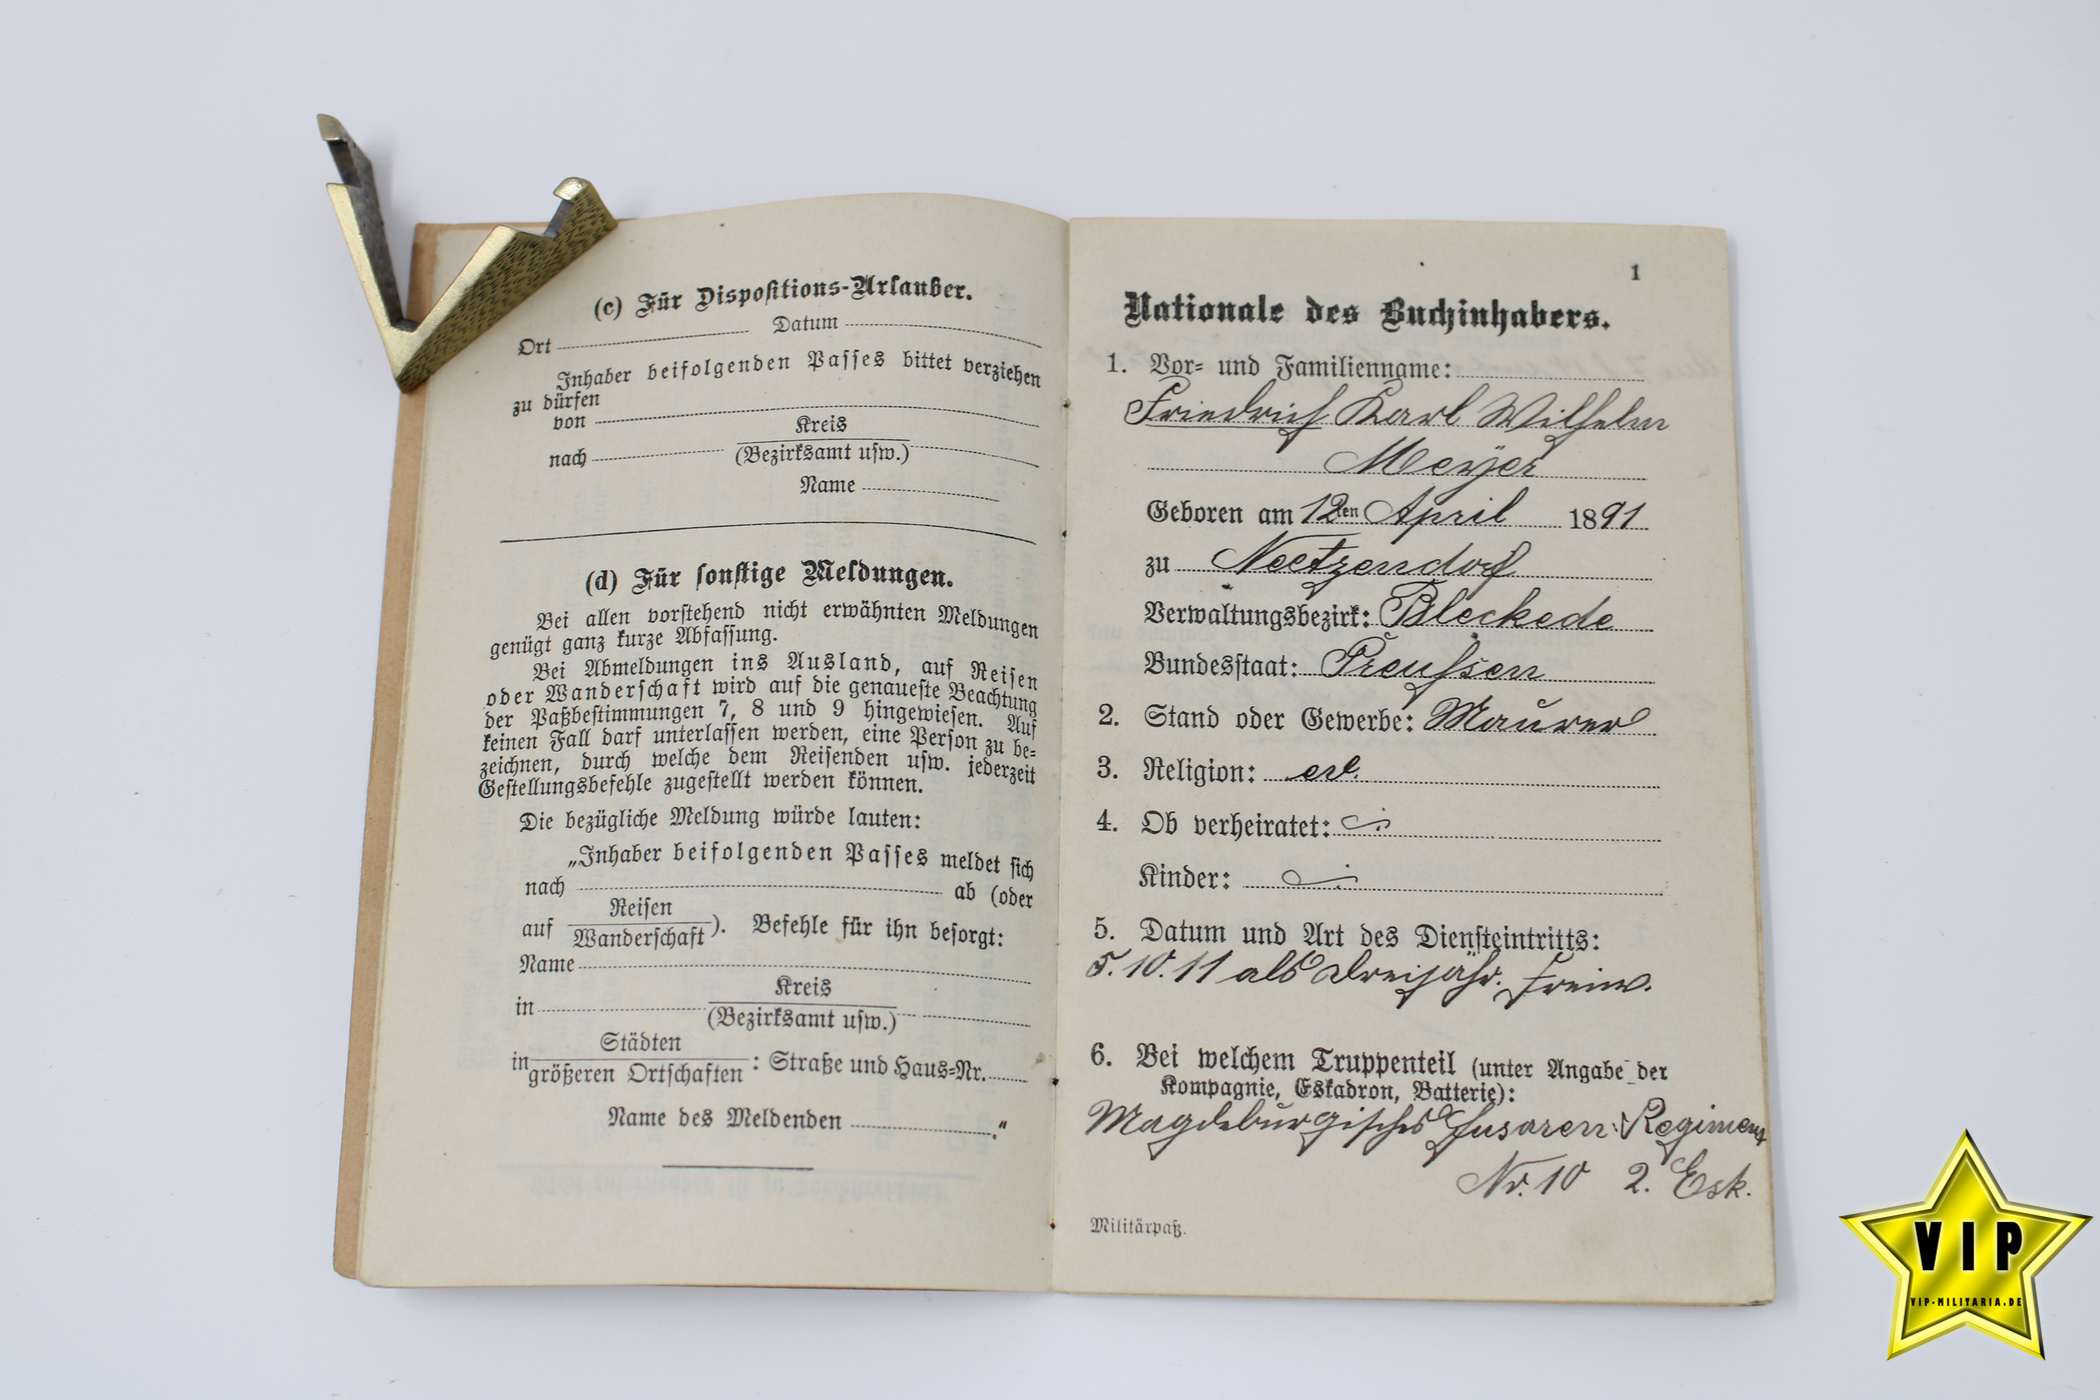 (c) Für Dispositions-Urlauber.
Ort Datum
Inhaber beifolgenden Passes bittet verziehen
zu dürfen
von
Kreis
nach (Bezirksamt usw.)
Name
(d) Für sonstige Meldungen.
Bei allen vorstehend nicht erwähnten Meldungen
genügt ganz kurze Abfassung.
Bei Abmeldungen ins Ausland, auf Reisen
oder Wanderschaft wird auf die genaueste Beachtung
der Paßbestimmungen 7, 8 und 9 hingewiesen. Auf
keinen Fall darf unterlassen werden, eine Person zu be-
zeichnen, durch welche dem Reisenden usw. jederzeit
Gestellungsbefehle zugestellt werden können.
Die bezügliche Meldung würde lauten:
„Inhaber beifolgenden Passes meldet sich
nach ab (oder
Reisen
auf Wanderschaft). Befehle für ihn besorgt:
Name
Kreis
in (Bezirksamt usw.)
Städten
in größeren Ortschaften : Straße und Haus-Nr.
Name des Meldenden ."
1
Nationale des Buchinhabers.
1. Vor- und Familienname:
Friedrich Karl Wilhelm
Meyer
Geboren am 12ten April 1891
zu Neetzendorf
Verwaltungsbezirk: Bleckede
Bundesstaat: Preußen
2. Stand oder Gewerbe: Maurer
3. Religion: ev.
4. Ob verheiratet:
Kinder:
5. Datum und Art des Diensteintritts:
5. 10. 11 als Dreijähr. Freiw.
6. Bei welchem Truppenteil (unter Angabe der
Kompagnie, Eskadron, Batterie):
Magdeburgisches Husaren-Regiment
Nr. 10 2. Esk.
Militärpaß.
VIP
VIP-MILITARIA.DE